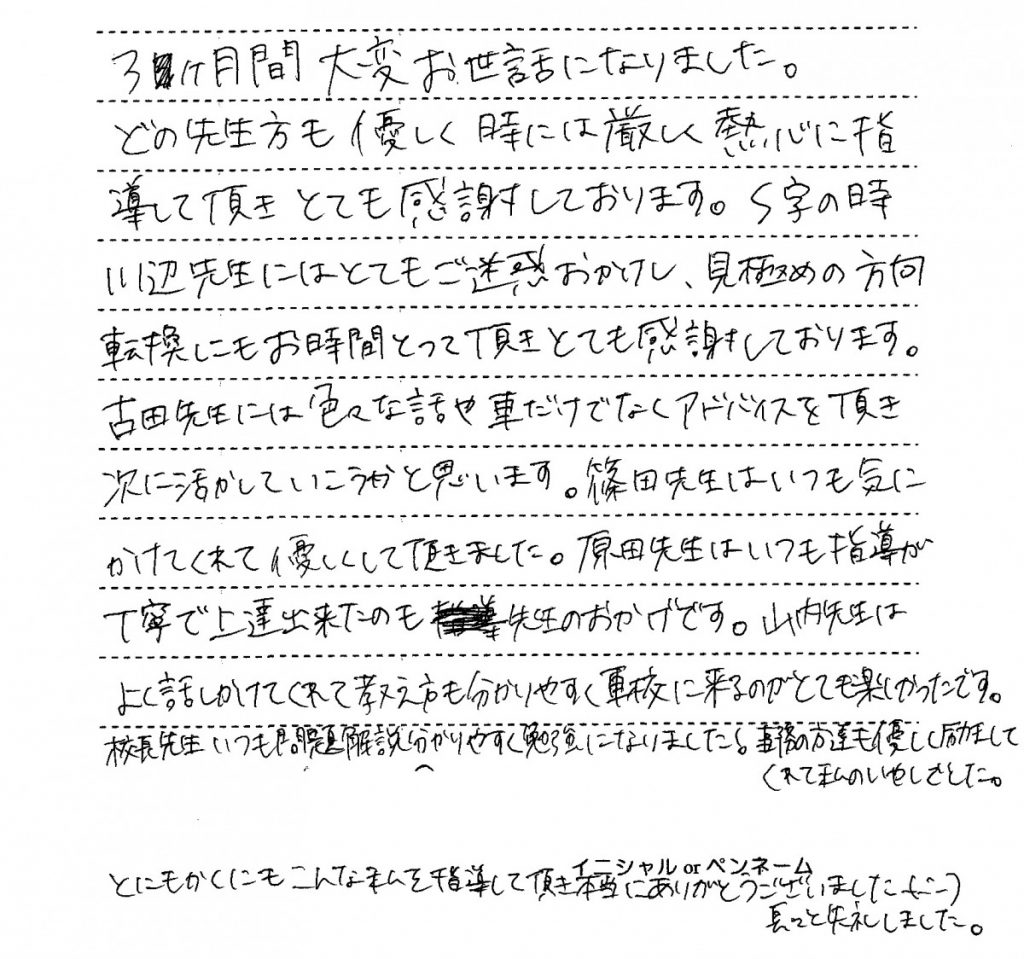 3ヶ月間 大変お世話になりました。
どの先生方も優しく時には厳しく熱心に指
導して頂きとても感謝しております。S字の時
川辺先生にはとてもご迷惑おかけし、見極めの方向
転換にもお時間とって頂きとても感謝しております。
古田先生には色々な話や車だけでなくアドバイスを頂き
次に活かしていこうかと思います。篠田先生はいつも気に
かけてくれて優しくして頂きました。原田先生はいつも指導が
丁寧で上達出来たのも先生のおかげです。山内先生は
よく話しかけてくれて教え方も分かりやすく車校に来るのがとても楽しかったです。
校長先生いつも問題解説分かりやすく勉強になりました。事務の方達も優しく励まして
くれて私のいやしでした。
イニシャル or ペンネーム
とにもかくにもこんな私を指導して頂き本当にありがとうございました(^-^)
長々と失礼しました。